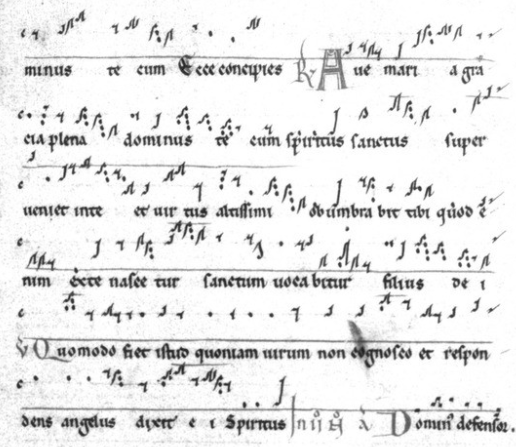 minus te cum Ecce concipies R Aue mari a gra
cia plena dominus te cum spiritus sanctus super
ueniet in te et uir tus altissimi obumbra bit tibi quod e
nim ex te nasce tur sanctum uoca bitur filius de i
V Quomodo fiet istud quoniam uirum non cognosco et respon
dens angelus dixit e i Spiritus Domin defensor.